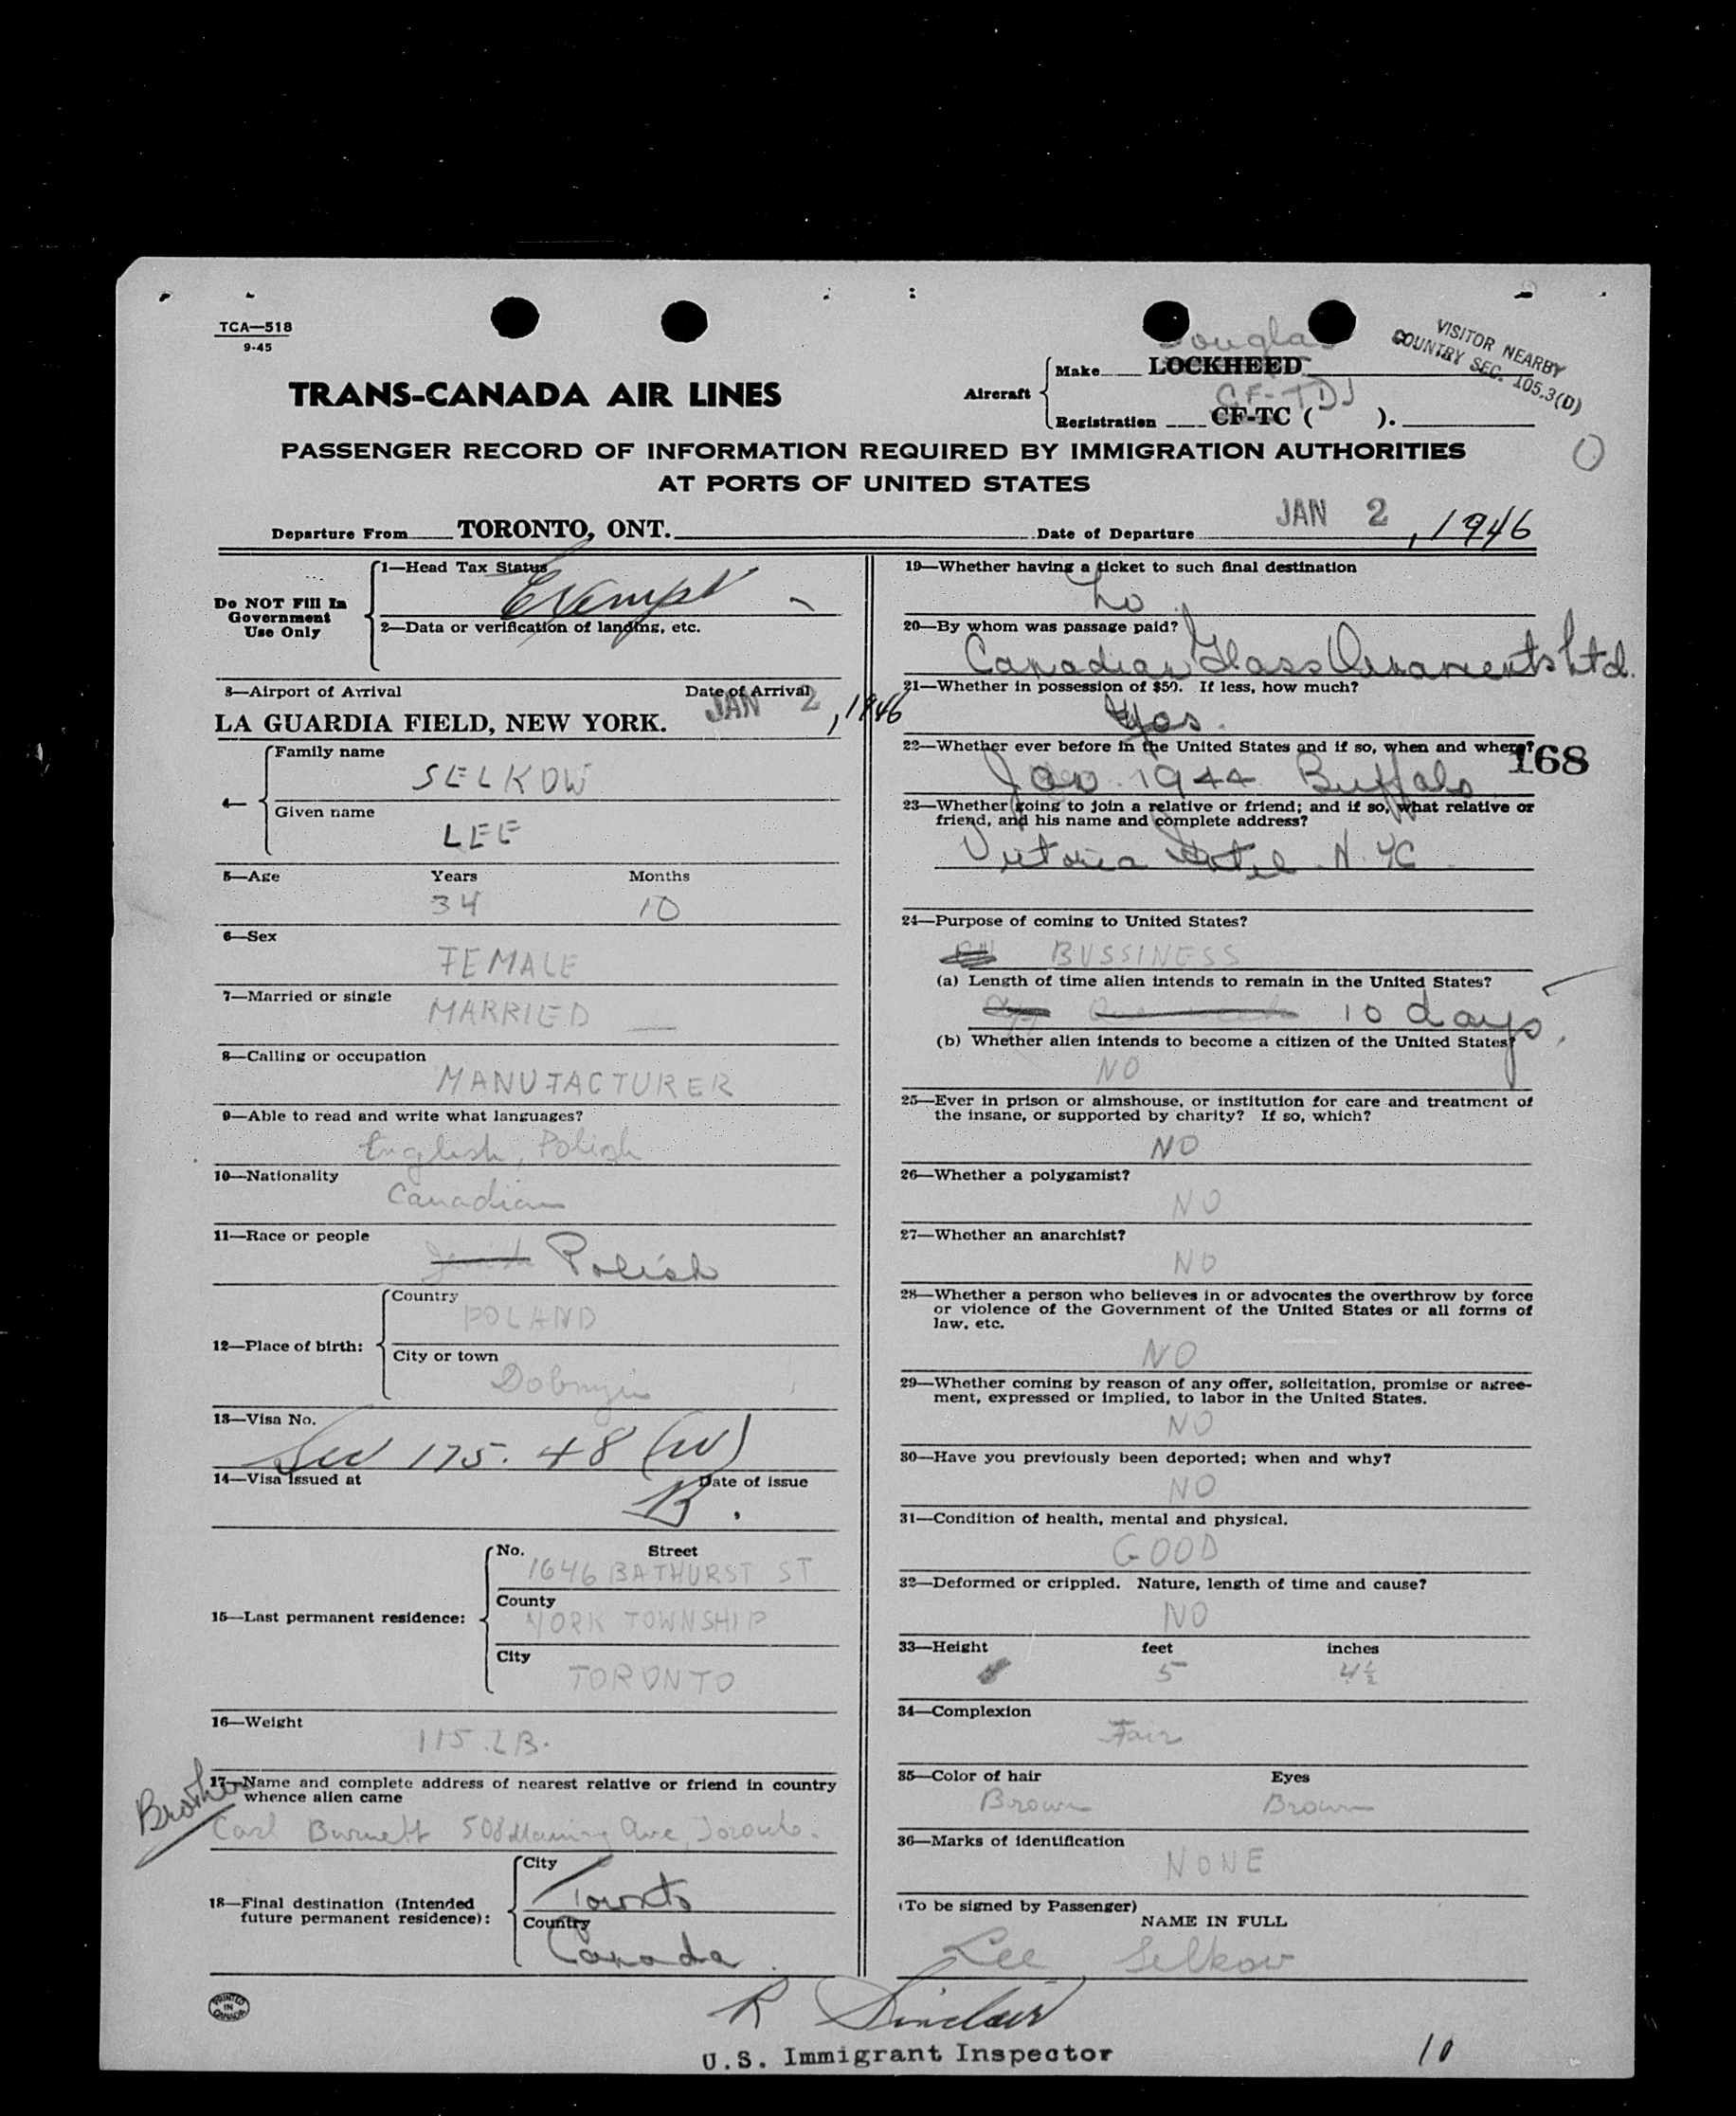 TCA—518
9-45
Douglas
VISITOR NEARBY
COUNTRY SEC. 105.3(D)
TRANS-CANADA AIR LINES
Aircraft
Make LOCKHEED
CF-TDJ
Registration CF-TC ( ).
PASSENGER RECORD OF INFORMATION REQUIRED BY IMMIGRATION AUTHORITIES
AT PORTS OF UNITED STATES
Departure From TORONTO, ONT. Date of Departure JAN 2, 1946
Do NOT Fill In
Government
Use Only
1—Head Tax Status
Exempt
2—Data or verification of landing, etc.
3—Airport of Arrival Date of Arrival
LA GUARDIA FIELD, NEW YORK. JAN 2, 1946
4—
Family name
SELKOW
Given name
LEE
5—Age Years Months
34 10
6—Sex
FEMALE
7—Married or single
MARRIED
8—Calling or occupation
MANUFACTURER
9—Able to read and write what languages?
English, Polish
10—Nationality
Canadian
11—Race or people
Polish
12—Place of birth:
Country
POLAND
City or town
13—Visa No.
Sec 175.48 (W)
14—Visa issued at Date of issue
B.
15—Last permanent residence:
No. Street
1646 BATHURST ST
County
YORK TOWNSHIP
City
TORONTO
16—Weight
115 LB.
Brother
17—Name and complete address of nearest relative or friend in country
whence alien came
Carl Burnett 508 Manning Ave, Toronto.
18—Final destination (Intended
future permanent residence):
City
Toronto
Country
Canada
19—Whether having a ticket to such final destination
20—By whom was passage paid?
Canadian Glass Ornaments Ltd.
21—Whether in possession of $50. If less, how much?
Yes.
22—Whether ever before in the United States and if so, when and where?
168
1944 Buffalo
23—Whether going to join a relative or friend; and if so, what relative or
friend, and his name and complete address?
Victoria Hotel N.Y.C
24—Purpose of coming to United States?
BUSSINESS
(a) Length of time alien intends to remain in the United States?
10 days.
(b) Whether alien intends to become a citizen of the United States?
NO
25—Ever in prison or almshouse, or institution for care and treatment of
the insane, or supported by charity? If so, which?
NO
26—Whether a polygamist?
NO
27—Whether an anarchist?
NO
28—Whether a person who believes in or advocates the overthrow by force
or violence of the Government of the United States or all forms of
law, etc.
NO
29—Whether coming by reason of any offer, solicitation, promise or agree-
ment, expressed or implied, to labor in the United States.
NO
30—Have you previously been deported; when and why?
NO
31—Condition of health, mental and physical.
GOOD
32—Deformed or crippled. Nature, length of time and cause?
NO
33—Height feet inches
5 4½
34—Complexion
Fair
35—Color of hair Eyes
Brown Brown
36—Marks of identification
NONE
(To be signed by Passenger)
NAME IN FULL
Lee Selkow
PRINTED
IN
CANADA
R Sinclair
U.S. Immigrant Inspector
10